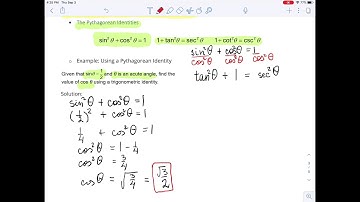 4:32 PM Thu Sep 3
• The Pythagorean Identities
sin²θ + cos²θ = 1 1 + tan²θ = sec²θ 1 + cot²θ = csc²θ
sin²θ + cos²θ = 1
cos²θ cos²θ cos²θ
tan²θ + 1 = sec²θ
○ Example: Using a Pythagorean Identity
Given that sinθ = 1/2 and θ is an acute angle, find the
value of cos θ using a trigonometric identity.
Solution:
sin²θ + cos²θ = 1
(1/2)² + cos²θ = 1
1/4 + cos²θ = 1
cos²θ = 1 - 1/4
cos²θ = 3/4
cosθ = √(3/4) = √3/2